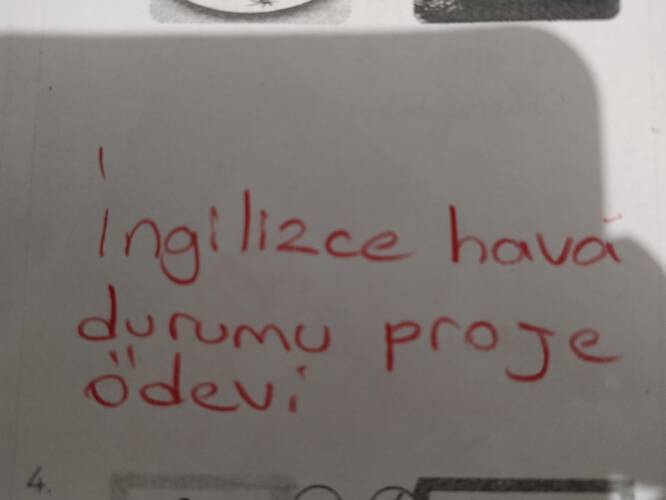 İngilizce hava
durumu proje
ödevi
4.